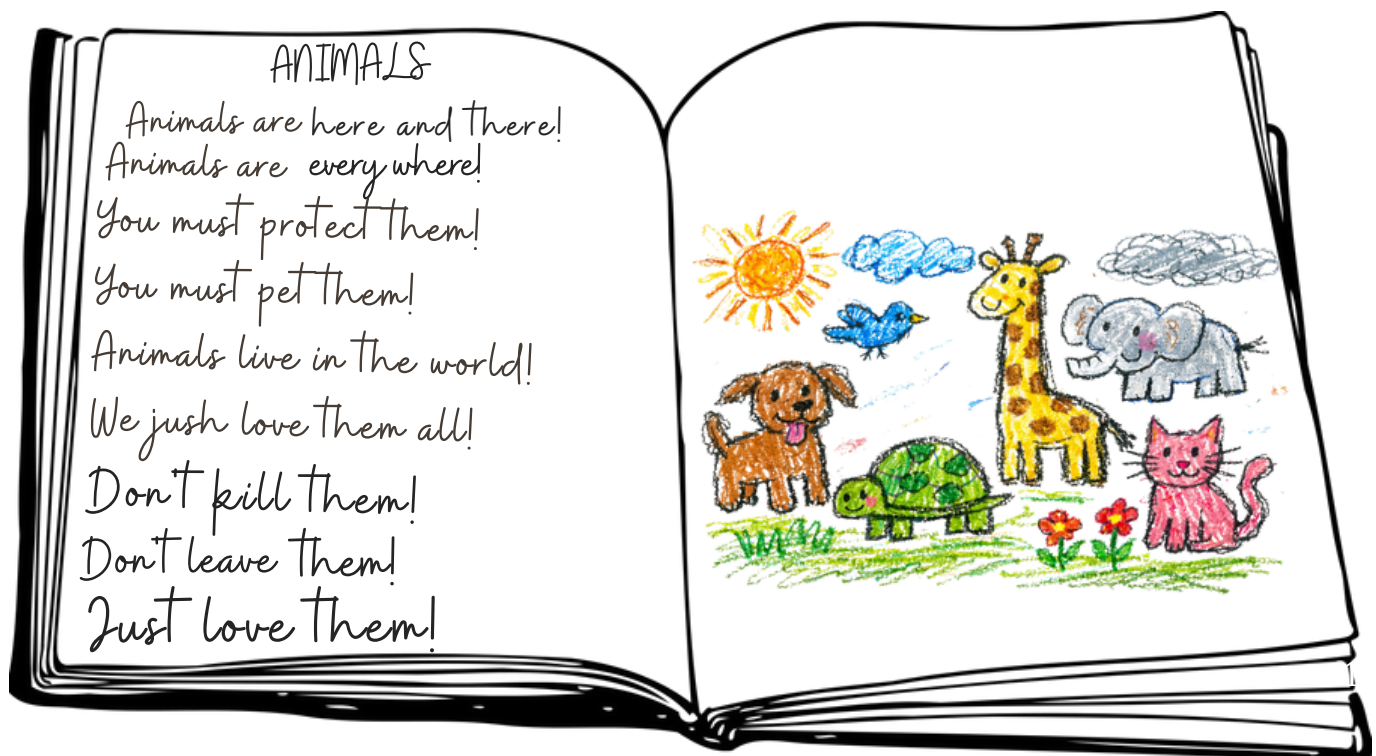 ANIMALS
Animals are here and there!
Animals are everywhere!
You must protect them!
You must pet them!
Animals live in the world!
We jush love them all!
Don't kill them!
Don't leave them!
Just love them!